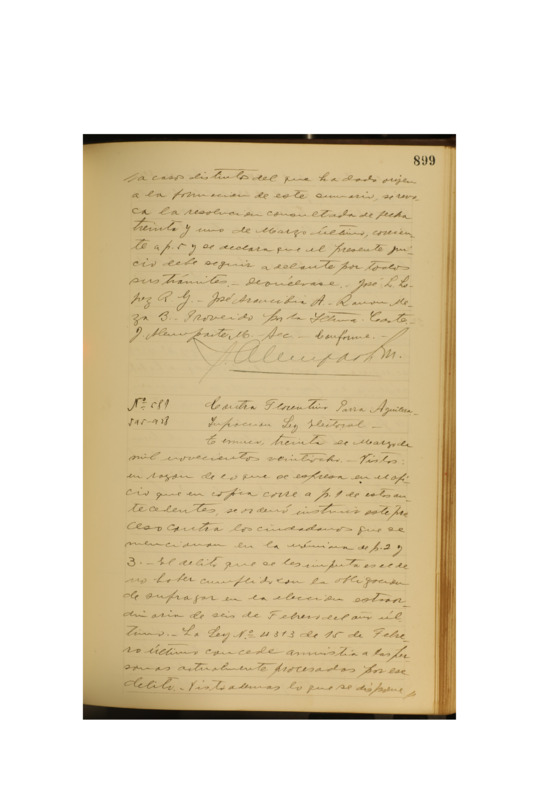 899
a casos distintos del que ha dado origen
a la formacion de este sumario, se revo
ca la resolucion consultada de fecha
treinta y uno de Marzo último, corrien
te a p. 5 y se declara que el presente jui
cio debe seguir adelante por todos
sus trámites - devuélvase. José L. Ló
pez R G. - José Arancibia A - Ramon Me
za B. - Proveido por la Iltma. Corte -
J. M. Sec. - Conforme -
Nº 589
Contra Florentino Parra Aguilera -
Infraccion Ley Electoral -
Temuco, treinta de Marzo de
mil novecientos veintiocho. - Vistos:
en razon de lo que se espresa en el ofi
cio que en copia corre a p. 1 de estos an
tecedentes, se ordenó instruir este pro
ceso contra los ciudadanos que se
mencionan en la nómina de p. 2 y
3. - El delito que se les imputa es el de
no haber cumplido con la obligacion
de sufragar en la eleccion estraor
dinaria de seis de Febrero del año úl
timo. - La Ley Nº 4313 de 15 de Febre
ro último concede amnistia a las per
sonas actualmente procesadas por ese
delito. - Visto ademas lo que se dispone